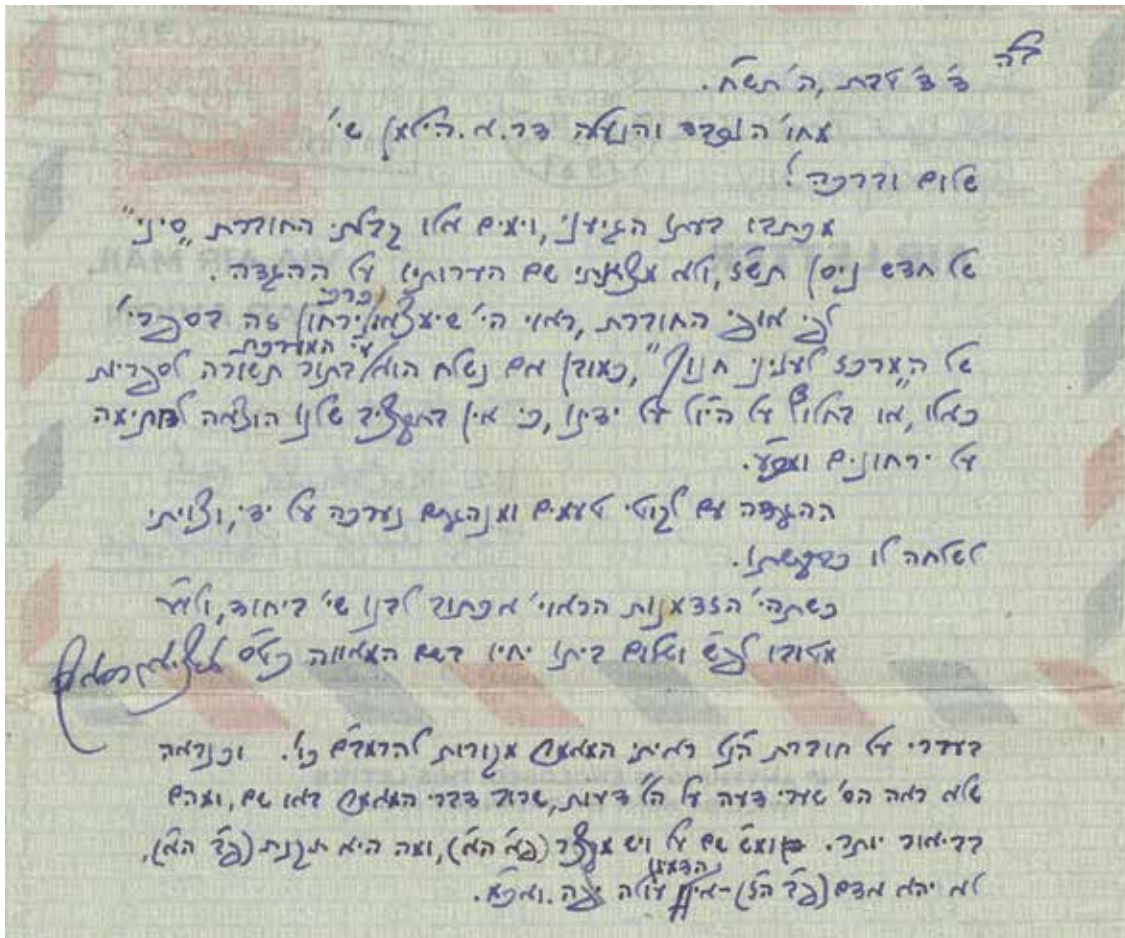 ב"ה
ד' ד' טבת, ה'תש"ח.
מחו' הנכבד והנעלה דר. א. הילמן שי'
שלום וברכה!
מכתבו בעתו הגיעני, וימים אלו קבלתי החוברת "סיני"
של חדש ניסן תש"ז, ולא מצאתי שם הערותיו על ההגדה.
לפי אופי החוברת, ראוי הי' שימצאו כרכי ירחון זה בספרי'
של "המרכז לעניני חנוך", כמובן אם נשלח הוא ע"י המערכת בתור תשורה לספריות
כאלו, או בחלוף על הי"ל על ידינו, כי אין בתקציב שלנו הוצאה לחתימה
על ירחונים
ההגדה עם לקוטי טעמים ומנהגים נערכה על ידי, וצויתי
לשלחה לו כבקשתו.
כשתהי' הזדמנות הראוי' אכתוב לבנו שי' ביחוד, ולע"ע
מטובו לפ"ש ושלום ביתו יחיו בשם המאווה כט"ס
בעברי על חוברת הנ"ל ראיתי המאמר אגרות להרמב"ם כו'. וכנראה
שלא ראה הס' שערי דעה על הל' דעות, שרוב דברי המאמר באו שם, ומהם
בביאור יותר. ומש"כ שם על ויש מקצר (פ"א ה"א), ומה היא תקנת (פ"ב ה"א),
לא יהא אדם (פ"ב ה"ז) - אין הדמיון עולה יפה. ואכ"מ.